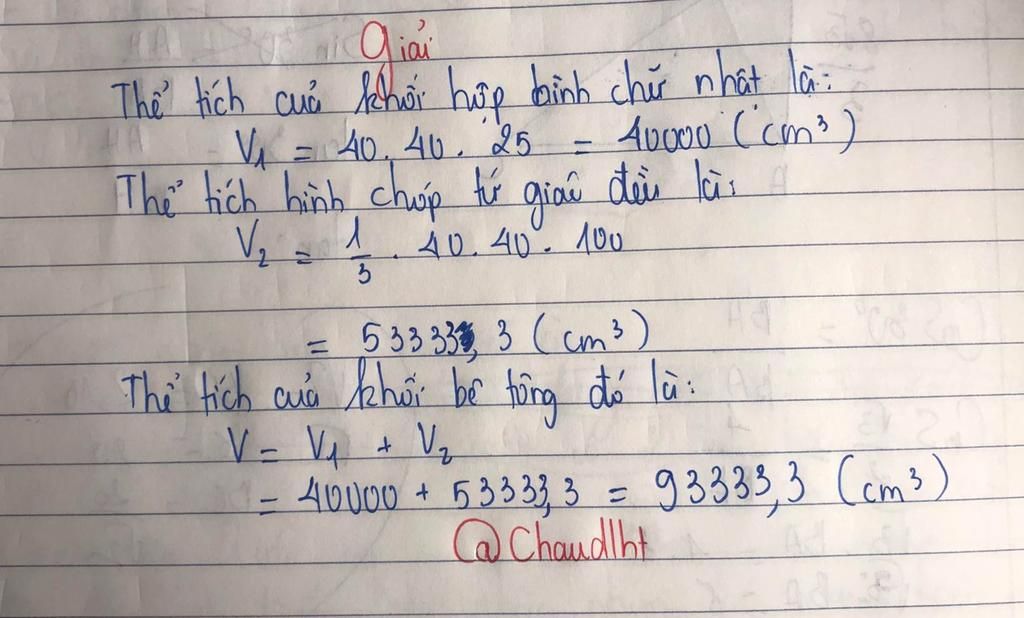 Giải
Thể tích của khối hộp hình chữ nhật là:
V₁ = 40. 40. 25 = 40000 (cm³)
Thể tích hình chóp tứ giác đều là:
V₂ = 1/3 . 40. 40. 100
= 53333, 3 (cm³)
Thể tích của khối bê tông đó là:
V = V₁ + V₂
= 40000 + 53333,3 = 93333,3 (cm³)
@Chaudlht